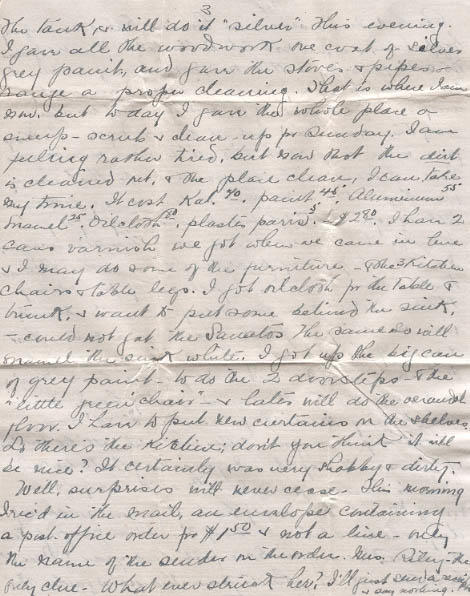 3
the tank, & will do it "silver" this evening.
I gave all the woodwork one coat of silver
grey paint, and gave the stoves & pipes &
range a proper cleaning. That is where I am
now, but to day I gave the whole place a
sweep - scrub & clean-up for Sunday. I am
feeling rather tired, but now that the dirt
is cleaned out, & the place clean, I can take
my time. It cost Kal. 40. paint 45. Aluminum 55
Enamel 25. Oilcloth plastes paris 5. $2
cans varnish we got when we came in here
& I may do some of the furniture - & the 3 kitchen
chairs & table legs. I got oilcloth for the table &
trunk, & want to put some behind the sink,
- could not get the Sanatos the same so will
enamel the sink white. I got up the big can
of grey paint - to do the 2 doorsteps - & the
"little green chair" - & later will do the verandah
floor. I have to put new curtains on the shelves.
So there's the kitchen; don't you think it will
be nice? It certainly was very shabby & dirty.
Well, surprises will never cease. This morning
I rec'd in the mail, an envelope containing
a post-office order for $1.50 & not a line - only
the name of the sender on the order. Mrs. Riley - the
only clue. What ever struck her? I'll just send a
& say nothing.